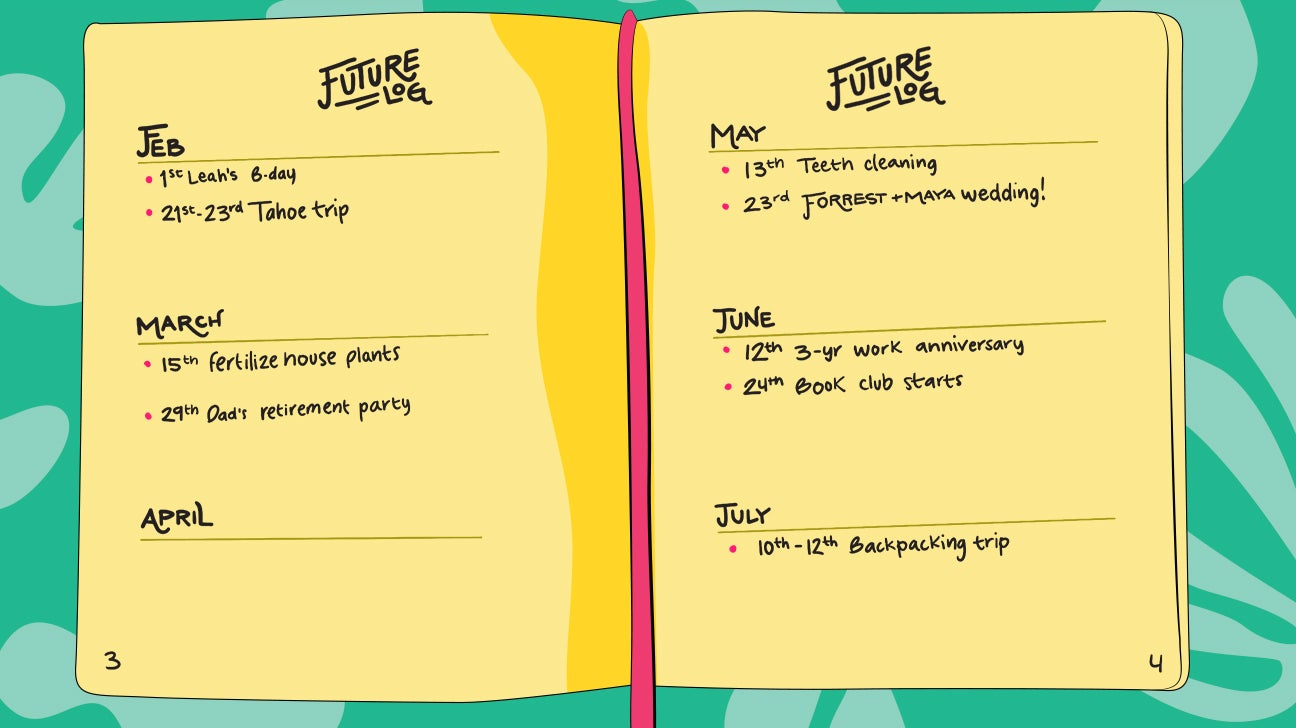 FUTURE
LOG
FEB
1st Leah's B-day
21st-23rd Tahoe trip
MARCH
15th fertilize house plants
29th Dad's retirement party
APRIL
3
FUTURE
LOG
MAY
13th Teeth cleaning
23rd FORREST + MAYA wedding!
JUNE
12th 3-yr work anniversary
24th Book club starts
JULY
10th-12th Backpacking trip
4